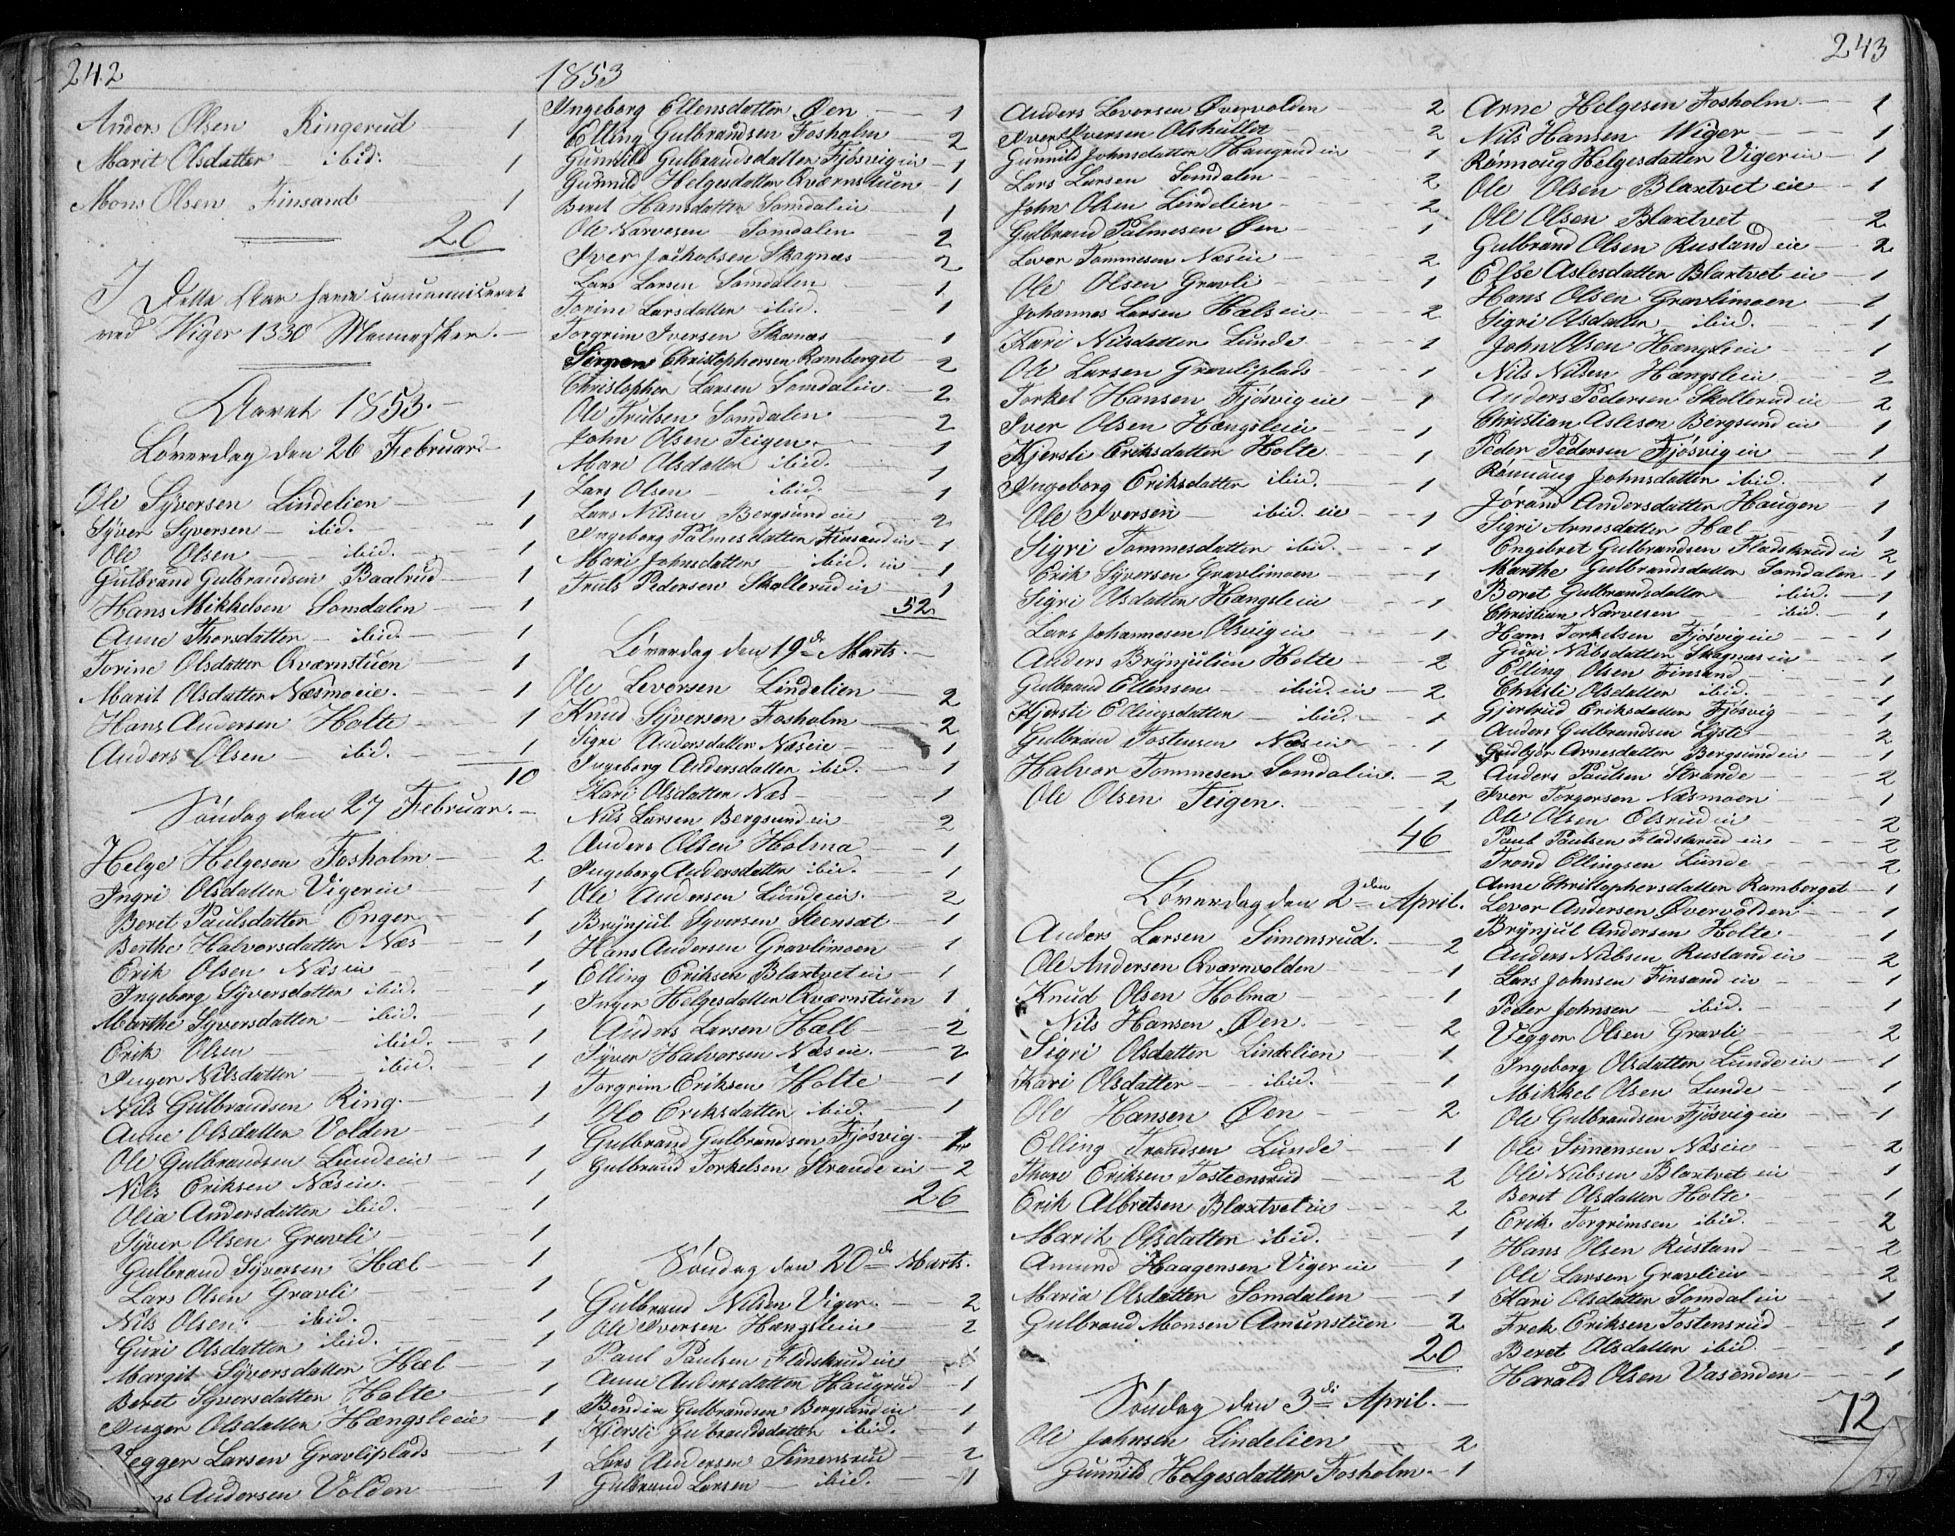 242
1853
Anders Olsen Ringerud 1
Marit Olsdatter ibid. 1
Mons Olsen Finsand 1
20
I Dette Aar have communiceret
ved Wiger 1330 Mennesker.
Aaret 1853.
Löverdag den 26 Februar
Ole Syversen Lindelien 1
Syver Syversen ibid. 1
Ole Olsen ibid. 1
Gulbrand Gulbrandsen Baalrud 1
Hans Mikkelsen Somdalen 1
Anne Thorsdatter ibid. 1
Torine Olsdatter Qværnstuen 1
Marit Olsdatter Næsmoeie. 1
Hans Andersen Holte 1
Anders Olsen ibid. 1
10
Söndag den 27 Februar.
Helge Helgesen Fosholm 2
Ingri Olsdatter Vigereie 1
Beret Paulsdatter Enger 1
Berthe Halvorsdatter Næs 1
Erik Olsen Næseie 1
Ingeborg Syversdatter ibid. 1
Marthe Syversdatter ibid. 1
Erik Olsen ibid. 1
Inger Nilsdatter ibid. 1
Nils Gulbrandsen Ring 1
Anne Olsdatter Volden 1
Ole Gulbrandsen Lundeeie 1
Nils Eriksen Næseie. 1
Olia Andersdatter ibid. 1
Syver Olsen Gravli 1
Gulbrand Syversen Hæl 1
Lars Olsen Gravli 1
Nils Olsen ibid. 1
Guri Olsdatter ibid. 1
Margit Syversdatter Hæl 1
Beret Syversdatter Holte 1
Inger Olsdatter Hængsleeie 1
Vegger Larsen Gravliplads 1
Andersen Volden 1
Ingeborg Ellensdatter Øen 1
Elling Gulbrandsen Fosholm 2
Gunnild Gulbrandsdatter Fjösvigeie 1
Gunnild Helgesdatter Qværnstuen 1
Beret Hansdatter Somdaleie 1
Ole Narvesen Somdalen 2
Iver Jackobsen Skagnæs 2
Lars Larsen Somdalen 1
Torine Larsdatter ibid. 1
Torgrim Iversen Skanæs 1
Simen Christophersen Ramberget 2
Christopher Larsen Somdalen. 2
Ole Trulsen Somdalen 2
John Olsen Teigen 1
Mari Olsdatter ibid. 1
Lars Olsen ibid. 1
Lars Nilsen Bergsundeie 2
Ingeborg Palmesdatter Finsandeie 1
Mari Johnsdatter ibid. eie 1
Truls Pedersen Skollerudeie 1
52
Löverdag den 19de Marts.
Ole Levorsen Lindelien 2
Knud Syversen Fosholm 2
Sigri Andersdatter Næseie 1
Ingeborg Andersdatter ibid. 1
Kari Olsdatter Næs 1
Nils Larsen Bergsundeie 2
Anders Olsen Holma 1
Ingeborg Andersdatter ibid. 1
Ole Andersen Lundeeie. 2
Brynjul Syversen Steensæt 1
Hans Andersen Gravlimoen 1
Elling Eriksen Blaxtveteie 1
Inger Helgesdatter Qværnstuen 1
Anders Larsen Hæll 2
Syver Halvorsen Næseie. 2
Torgrim Eriksen Holte 1
Eriksdatter ibid. 1
Gulbrand Gulbrandsen Fjösvig. 1
Gulbrand Torkelsen Strandeeie 2
26
Söndag den 20de Marts.
Gulbrand Nilsen Viger 2
Ole Iversen Hængsleeie 2
Paul Paulsen Fladskrudeie
Anne Andersdatter Haugrud 1
Bendix Gulbrandsen Bergsundeie 1
Kjersti Gulbrandsdatter ibid. 1
Lars Andersen Simensrud 2
Gulbrand Larsen ibid. 1
243
Anders Levorsen Øvervolden 2
Iver Iversen 2
Gunnild Johnsdatter Haugrudeie 1
Lars Larsen Somdalen 2
John Olsen Lindelien 2
Gulbrand Palmesen Øen 1
Levor Tommesen Næseie 2
Ole Olsen Gravli 1
Johannes Larsen Hælseie 2
Kari Nilsdatter Lunde 1
Ole Larsen Gravliplads 1
Torkel Hansen Fjösvigeie 1
Iver Olsen Hængsleeie 1
Kjersti Eriksdatter Holte 1
Ingeborg Eriksdatter ibid. 1
Ole Iversen ibid. eie 1
Sigri Tommesdatter ibid. 1
Erik Syversen Gravlimoen 1
Sigri Olsdatter Hængsleeie 1
Lars Johannesen Olsvigeie 1
Anders Brynjulsen Holte 2
Gulbrand Ellensen ibid. eie 2
Kjersti Ellingsdatter ibid. 1
Gulbrand Tostensen Næseie 1
Halvor Tommesen Somdaleie. 2
Ole Olsen Teigen. 1
46
Löverdag den 2den April.
Anders Larsen Simensrud. 2
Ole Andersen Qværnvolden 1
Knud Olsen Holma 1
Nils Hansen Øen. 2
Sigri Olsdatter Lindelien 1
Kari Olsdatter ibid. 1
Ole Hansen Øen 2
Elling Trondsen Lunde 1
Thore Eriksen Tosteensrud 2
Erik Albretsen Blaxtveteie 2
Marit Olsdatter ibid. 1
Amund Haagensen Vigereie 1
Maria Olsdatter Somdalen 1
Gulbrand Monsen Amunstuen 2
20
Söndag den 3die April.
Ole Johnsen Lindelien 2
Gunnild Helgesdatter Fosholm. 1
Arne Helgesen Fosholm. 1
Nils Hansen Wiger 1
Rønnoug Helgesdatter Vigereie 1
Ole Olsen Blaxtvet eie 1
Ole Olsen Blaxtvet 2
Gulbrand Olsen Rustandeie 2
Else Aslesdatter Blaxtveteie 1
Hans Olsen Gravlimoen 1
Sigri Olsdatter ibid. 1
John Olsen Hængsleeie 1
Nils Nilsen Hængsleeie 2
Anders Pedersen Skollerudeie 2
Christian Aslesen Bergsundeie 1
Peder Pedersen Fjösvigeie 1
Rönnoug Johnsdatter ibid. 1
Jörand Andersdatter Haugen 1
Sigri Arnesdatter Hæl 1
Engebret Gulbrandsen Fladskrudeie 2
Marthe Gulbrandsdatter Somdalen 1
Beret Gulbrandsdatter ibid. 1
Christian Narvesen ibid. 1
Hans Torkelsen Fjösvigeie 1
Guri Nubsdatter Skagnæseie 1
Elling Olsen Finsand 1
Christi Olsdatter ibid. 1
Gjertrud Eriksdatter Fjösvig 1
Anders Gulbrandsen Lyste 2
Gudbjør Arnesdatter Bergsundeie 1
Anders Paulsen Strande 2
Iver Torgersen Næsmoen 1
Ole Olsen Elsrudeie 2
Paul Paulsen Fladskrudeie 2
Trond Ellingsen Lunde 2
Anne Christophersdatter Ramberget 1
Levor Andersen Øvervolden 1
Brynjul Andersen Holte 1
Anders Nubsen Rustandeie 2
Lars Johnsen Finsandeie 1
Peder Johnsen ibid. 1
Vegger Olsen Gravli 2
Ingeborg Olsdatter Lundeeie 1
Mikkel Olsen Lunde 1
Ole Gulbrandsen Fjösvigeie 1
Ole Simensen Næseie 2
Ole Nubsen Blaxtveteie 1
Beret Olsdatter Holte 1
Erik Torgrimsen ibid. 2
Hans Olsen Rustand 2
Ole Larsen Gravlieie 2
Kari Olsdatter Somdaleie 1
Frek Eriksen Tostensrud 1
Beret Olsdatter ibid. 1
Harald Olsen Vasenden 1
72